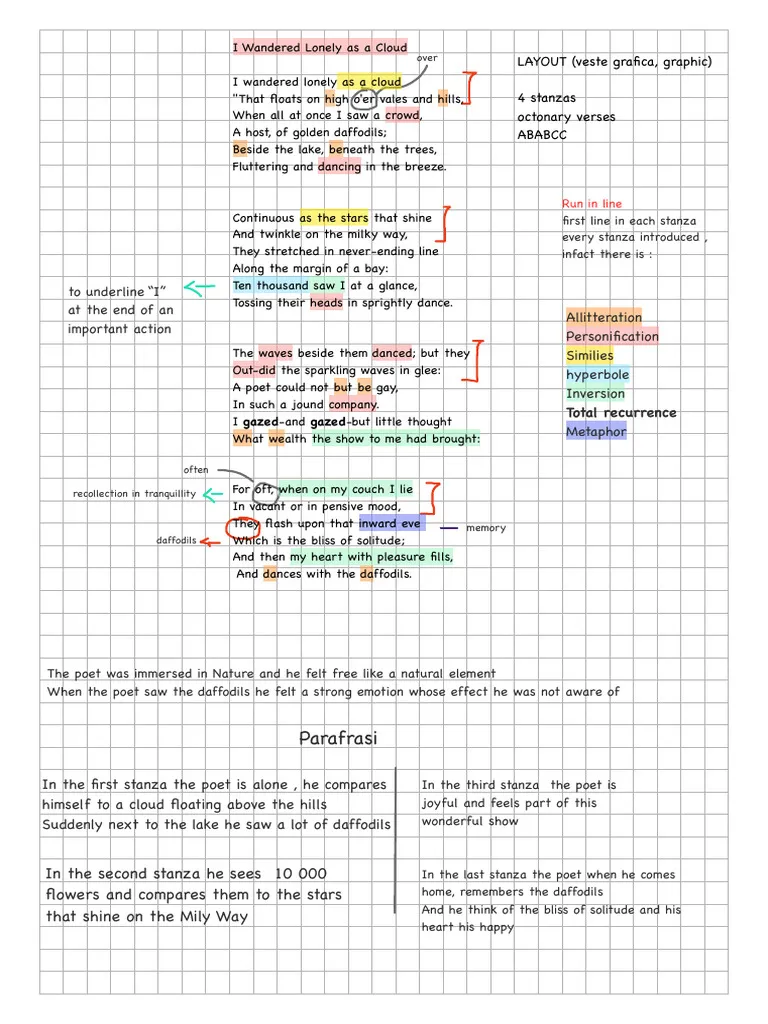 I Wandered Lonely as a Cloud
over
LAYOUT (veste grafica, graphic)
I wandered lonely as a cloud
"That floats on high o'er vales and hills,
4 stanzas
When all at once I saw a crowd,
octonary verses
A host, of golden daffodils;
ABABCC
Beside the lake, beneath the trees,
Fluttering and dancing in the breeze.
Run in line
first line in each stanza
every stanza introduced ,
infact there is :
Continuous as the stars that shine
And twinkle on the milky way,
They stretched in never-ending line
Along the margin of a bay:
Ten thousand saw I at a glance,
Tossing their heads in sprightly dance.
to underline "I"
at the end of an
important action
Allitteration
Personification
Similies
hyperbole
Inversion
Total recurrence
Metaphor
The waves beside them danced; but they
Out-did the sparkling waves in glee:
A poet could not but be gay,
In such a jound company.
I gazed-and gazed-but little thought
What wealth the show to me had brought:
often
recollection in tranquillity
For oft, when on my couch I lie
In vacant or in pensive mood,
They flash upon that inward eve
memory
daffodils
Which is the bliss of solitude;
And then my heart with pleasure fills,
And dances with the daffodils.
The poet was immersed in Nature and he felt free like a natural element
When the poet saw the daffodils he felt a strong emotion whose effect he was not aware of
Parafrasi
In the first stanza the poet is alone , he compares
himself to a cloud floating above the hills
Suddenly next to the lake he saw a lot of daffodils
In the second stanza he sees 10 000
flowers and compares them to the stars
that shine on the Mily Way
In the third stanza the poet is
joyful and feels part of this
wonderful show
In the last stanza the poet when he comes
home, remembers the daffodils
And he think of the bliss of solitude and his
heart his happy